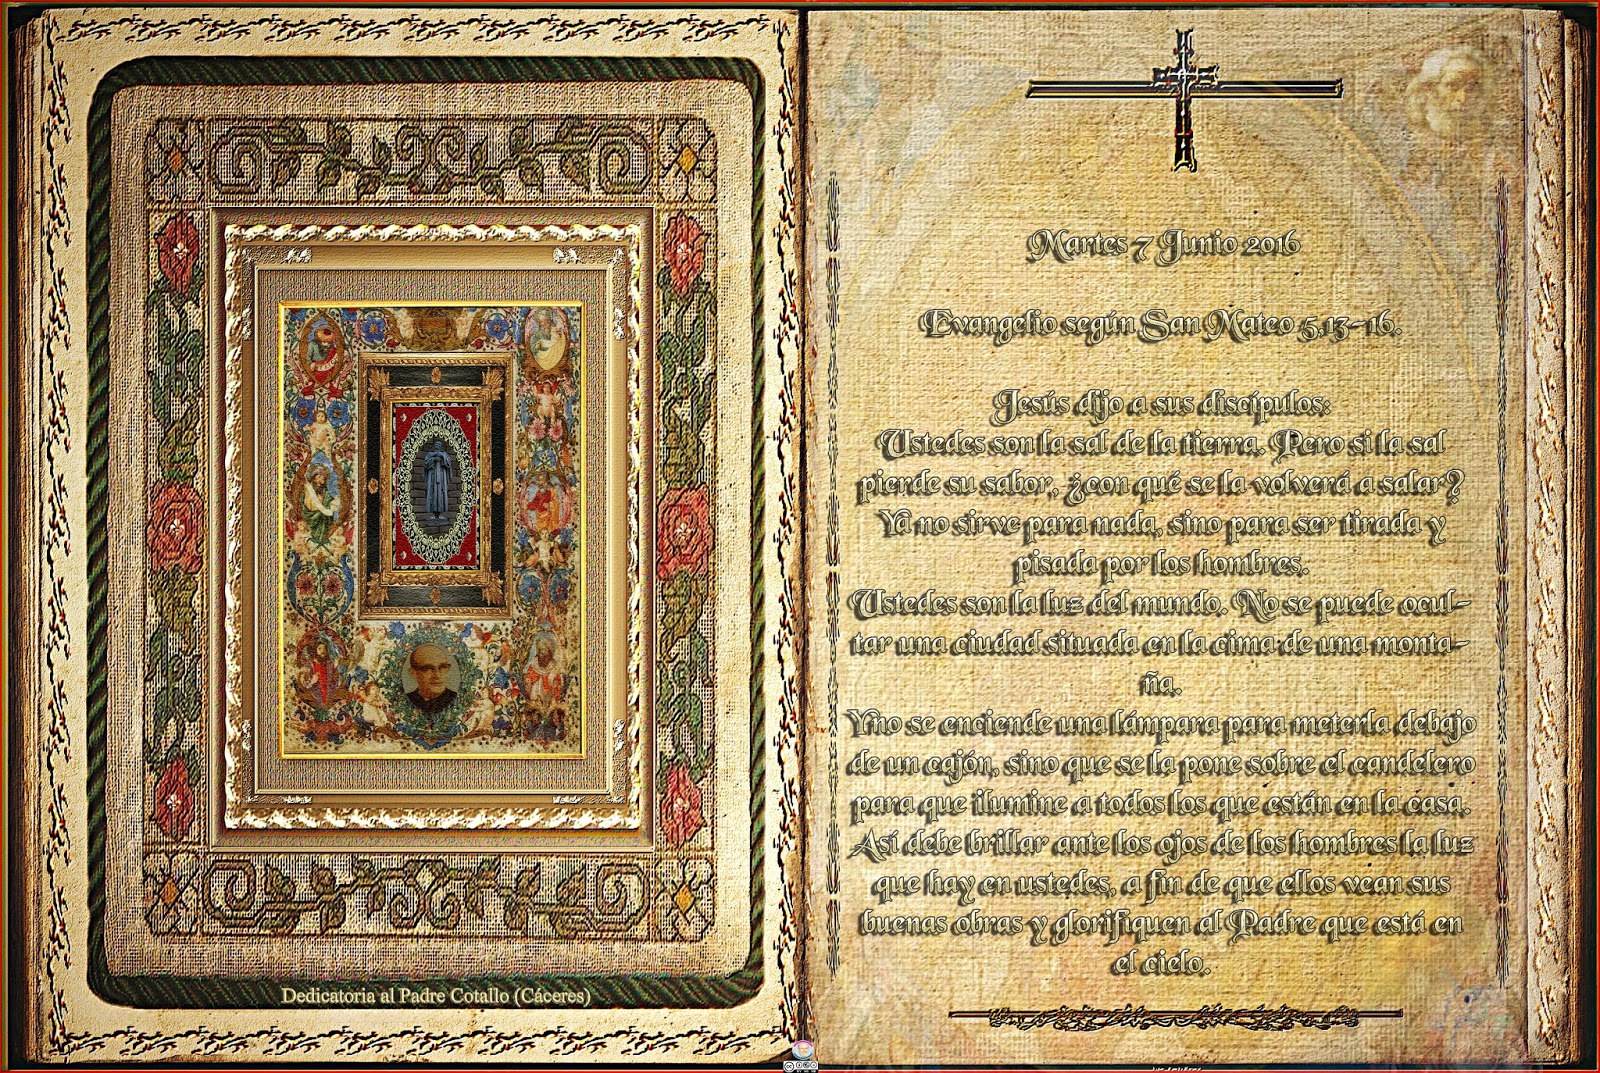 Dedicatoria al Padre Cotallo (Cáceres)
Martes 7 Junio 2016
Evangelio según San Mateo 5,13-16.
Jesús dijo a sus discípulos:
Ustedes son la sal de la tierra. Pero si la sal
pierde su sabor, ¿con qué se la volverá a salar?
Ya no sirve para nada, sino para ser tirada y
pisada por los hombres.
Ustedes son la luz del mundo. No se puede ocul-
tar una ciudad situada en la cima de una monta-
ña.
Y no se enciende una lámpara para meterla debajo
de un cajón, sino que se la pone sobre el candelero
para que ilumine a todos los que están en la casa.
Así debe brillar ante los ojos de los hombres la luz
que hay en ustedes, a fin de que ellos vean sus
buenas obras y glorifiquen al Padre que está en
el cielo.